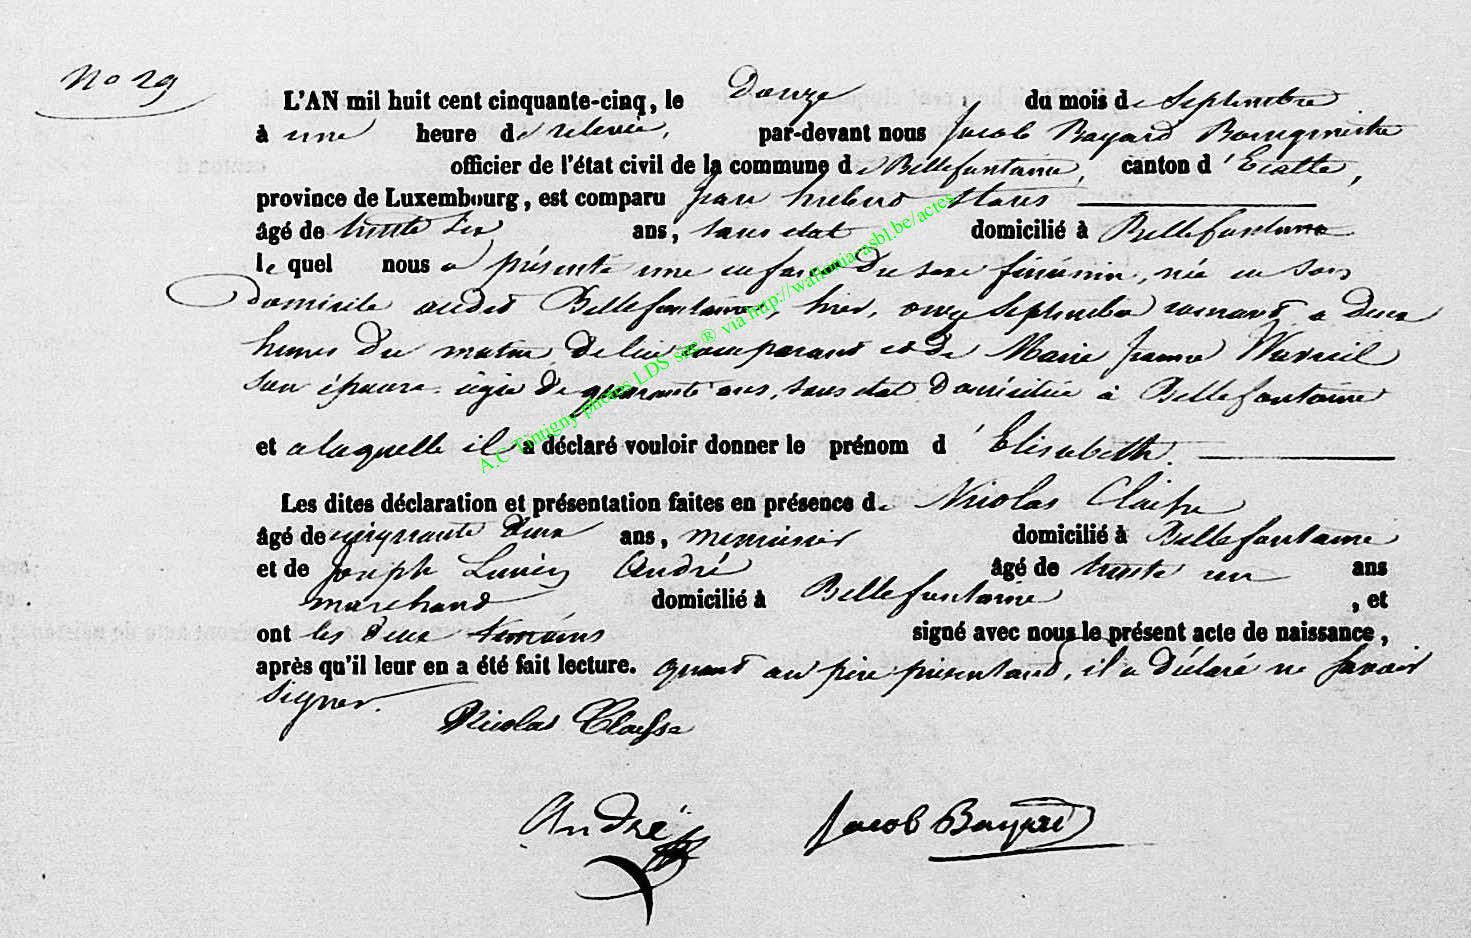 No 29
L'AN mil huit cent cinquante-cinq, le douze du mois de Septembre
à une heure de relevée, par-devant nous Jacob Bayard Bourgmestre
officier de l'état civil de la commune de Bellefontaine, canton d'Etalle,
province de Luxembourg, est comparu Jean hubert
âgé de trente six ans, sans etat domicilié à Bellefontaine
lequel nous a présenté une enfant du sexe féminin, née en son
domicile audit Bellefontaine, hier, onze Septembre courant, a deux
heures du matin de lui comparant et de Marie Jeanne
son épouse âgée de quarante ans, sans etat domiciliée à Bellefontaine
et a laquelle il a déclaré vouloir donner le prénom d'Elisabeth.
Les dites déclaration et présentation faites en présence de Nicolas Claisse
âgé de cinquante deux ans, menuisier domicilié à Bellefontaine
et de Joseph Lucien André âgé de trente un ans
marchand domicilié à Bellefontaine, et
ont les deux témoins signé avec nous le présent acte de naissance,
après qu'il leur en a été fait lecture. quant au père présentant, il a déclaré ne savoir
signer.
Nicolas Claisse
André Jacob Bayard
A.C Tintigny photos LDS sac ® via http://wallonia-asbl.be/actes